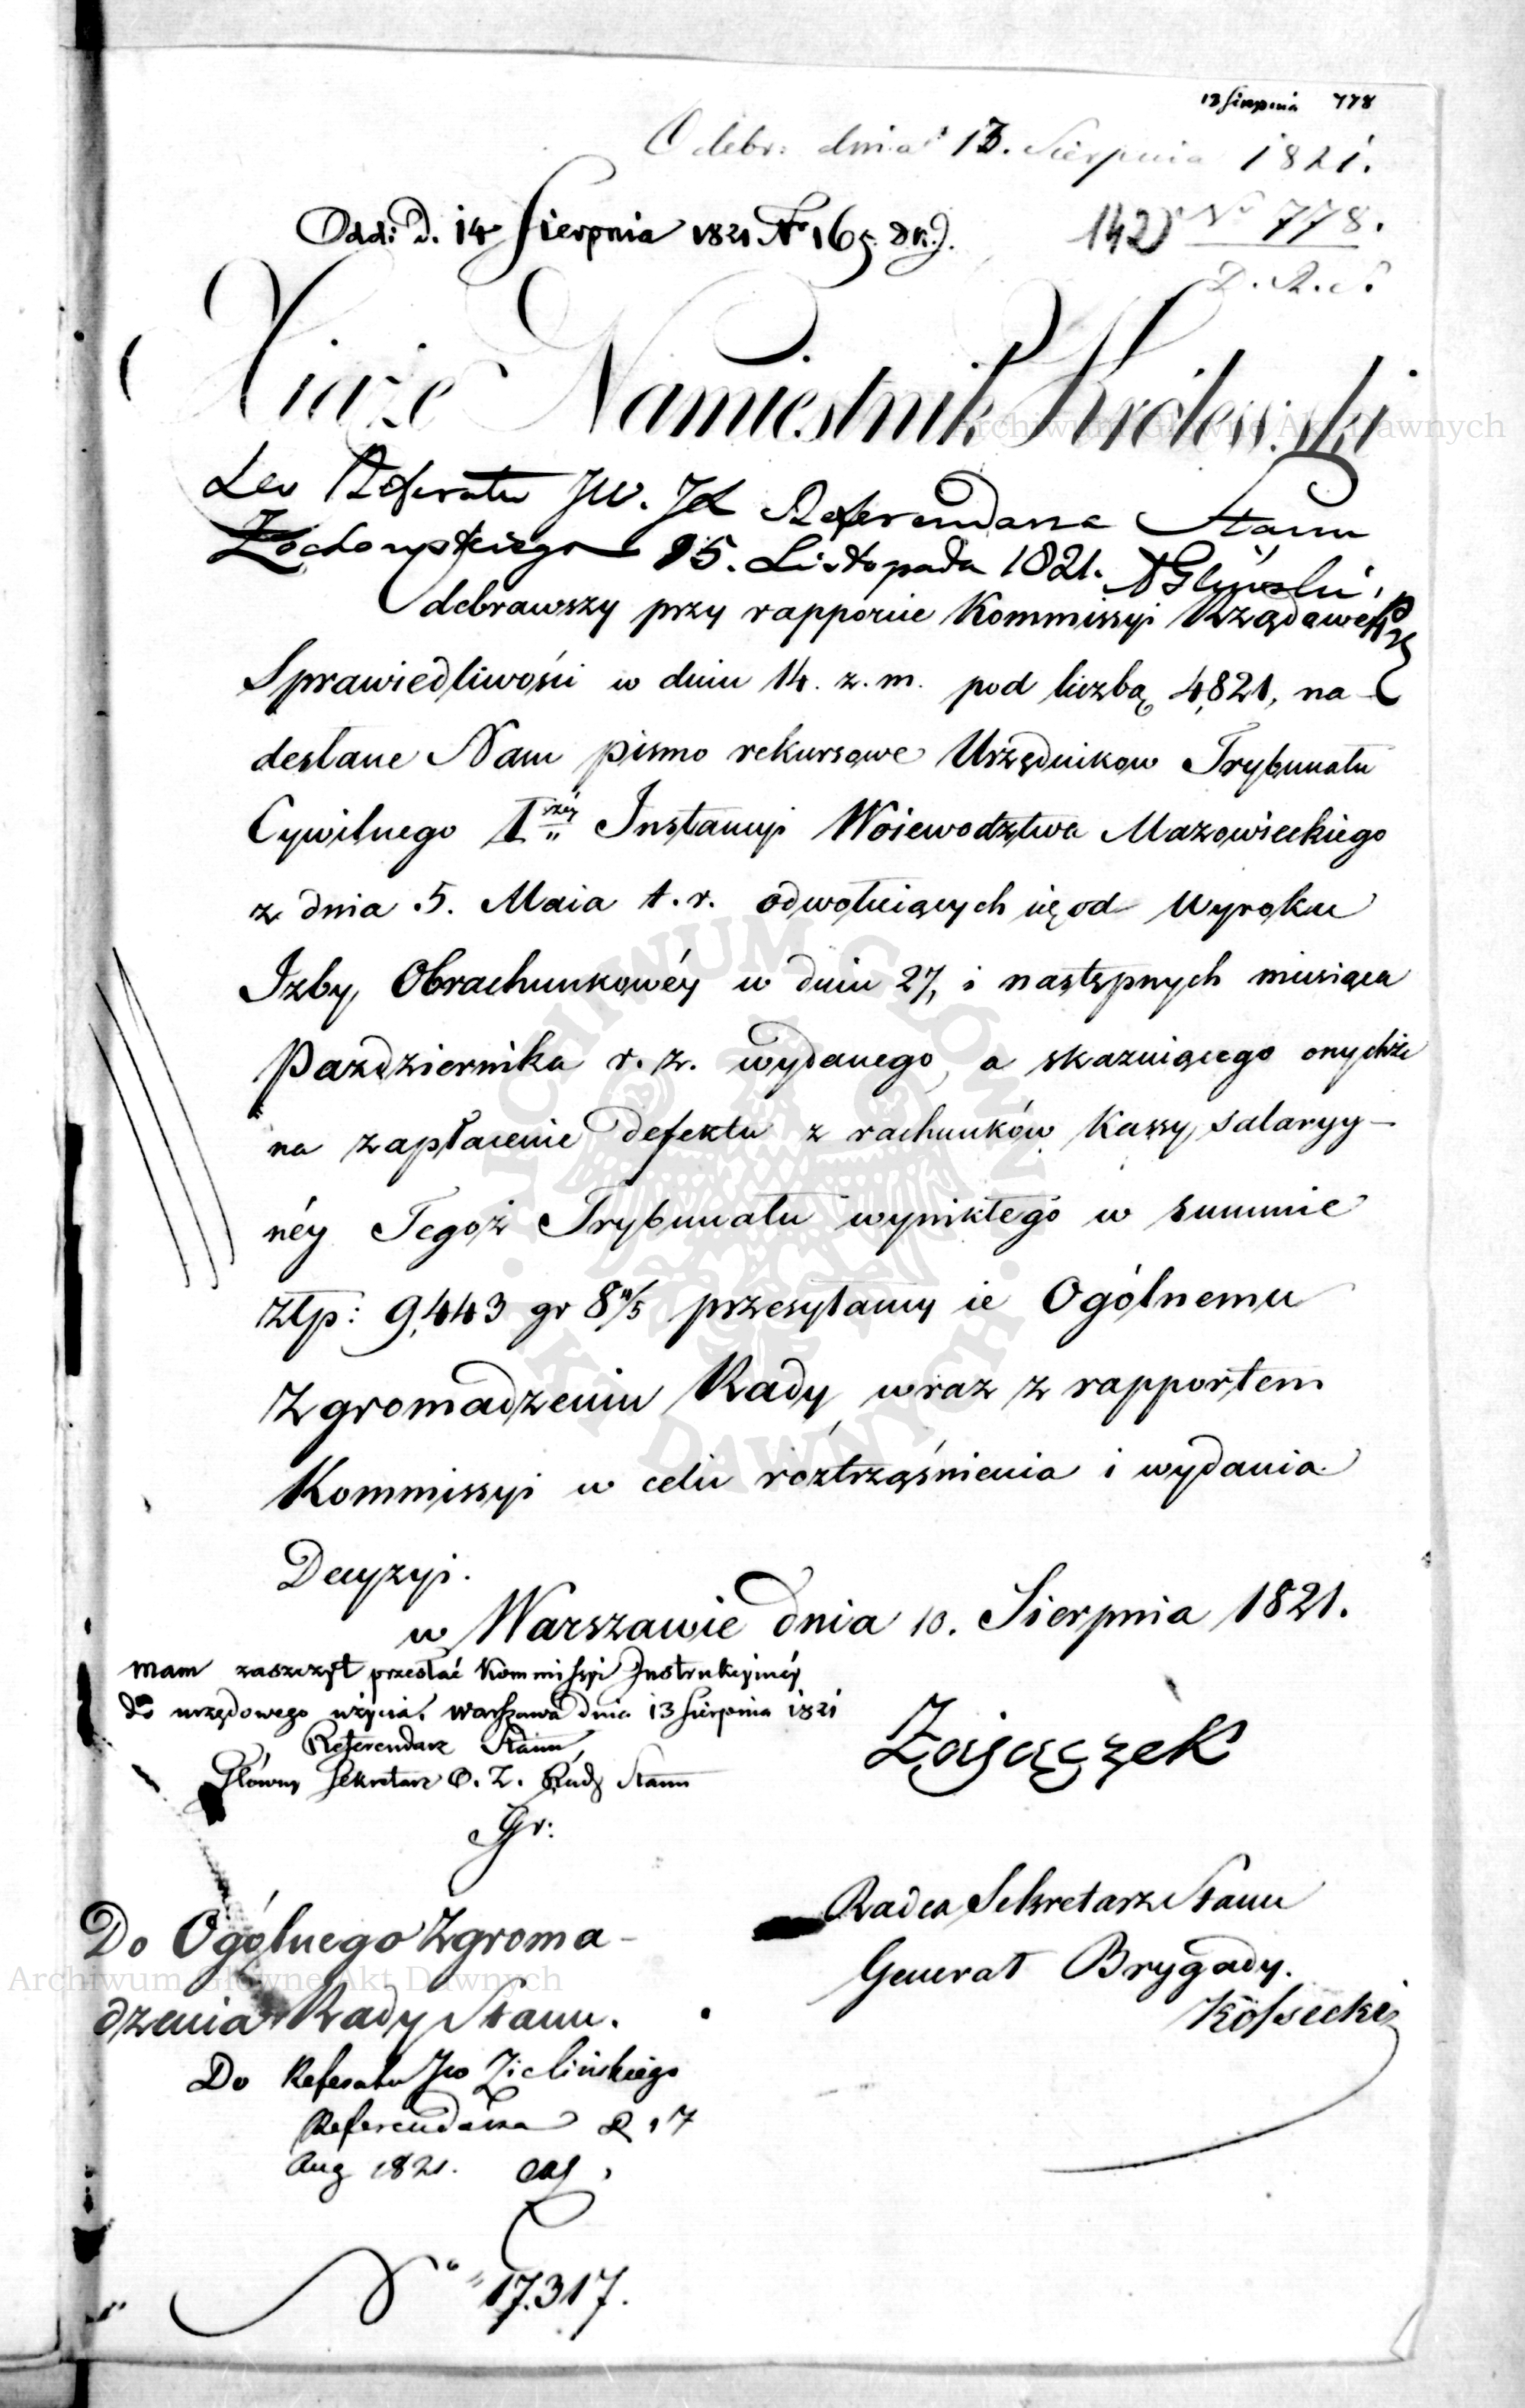 13 Sierpnia 778
Odebr: dnia 13. Sierpnia 1821.
Odd: d. 14 Sierpnia 1821 No 165.
142) No 778.
Xiąże Namiestnik Królewski
Do Referatu JW. Referendarza Stanu
Żochowskiego 15. Listopada 1821.
Odebrawszy przy rapporcie Kommissyi Rządowey
Sprawiedliwości w dniu 14. z. m. pod liczbą 4,821, na-
desłane Nam pismo rekursowe Urzędnikow Trybunału
Cywilnego Iszéy Instancyi Woiewodztwa Mazowieckiego
z dnia 5. Maia t. r. odwołuiących się od Wyroku
Izby Obrachunkowéy w dniu 27, i następnych miesiąca
Pazdziernika r. z. wydanego, a skazuiącego onychże
na zapłacenie defektu z rachunków Kassy salaryy-
néy Tegoż Trybunału wynikłego w summie
złp: 9,443 gr 8 4/5 przesyłamy ie Ogólnemu
Zgromadzeniu Rady wraz z rapportem
Kommissyi w celu róztrząśnienia i wydania
Decyzyi.
w Warszawie dnia 10. Sierpnia 1821.
Mam zaszczyt przesłać Kommissyi Instrukcyinéy
do urzędowego użycia. Warszawa dnia 13 Sierpnia 1821
Referendarz Stanu,
Główny Sekretarz O. Z. Rady Stanu
Gr:
Zajączek
Radca Sekretarz Stanu
Generał Brygady.
Kossecki
Do Ogólnego Zgroma-
dzenia Rady Stanu.
Do Referatu JW Zielińskiego
Referendarza D 17
Aug 1821.
No 17.317.
Archiwum Główne Akt Dawnych
Archiwum Główne Akt Dawnych
ARCHIWUM GŁÓWNE AKT DAWNYCH